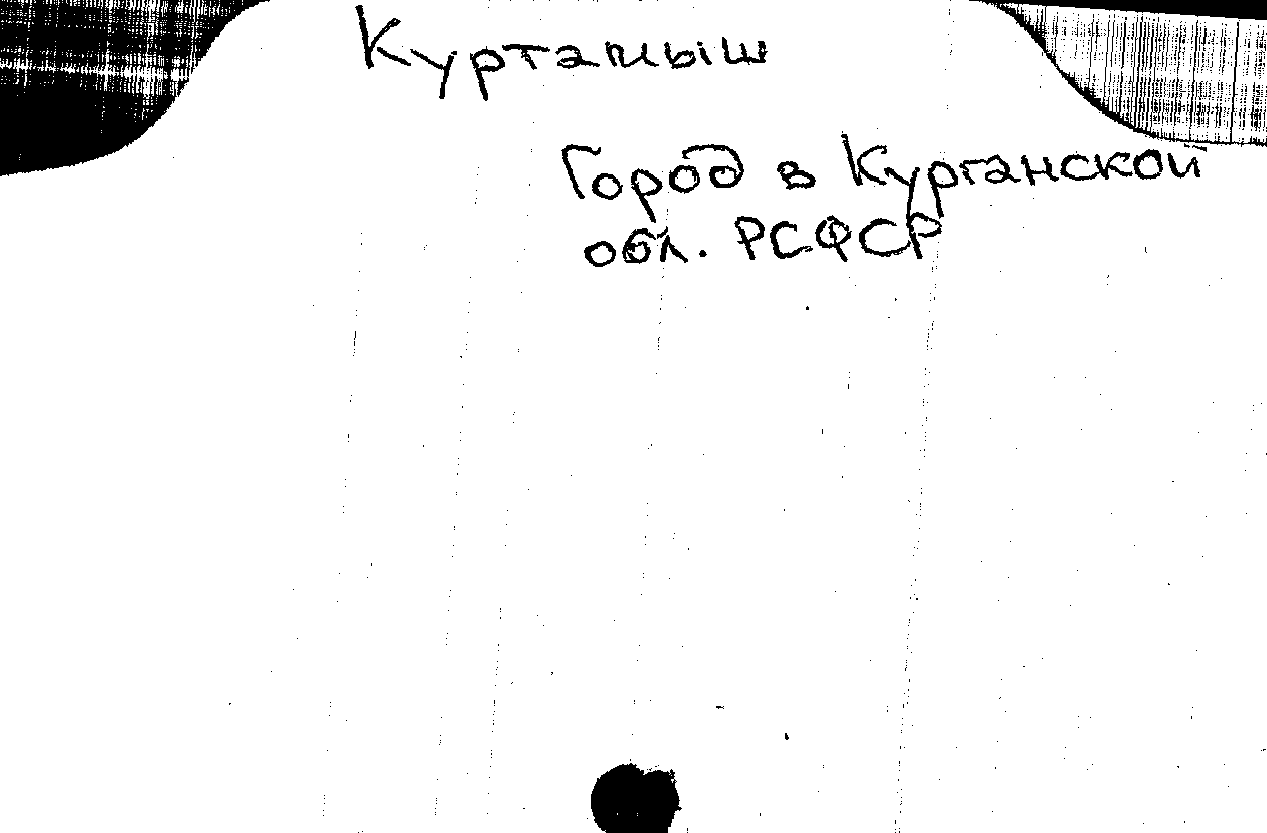 Куртамыш
Город в Курганской
обл. РСФСР